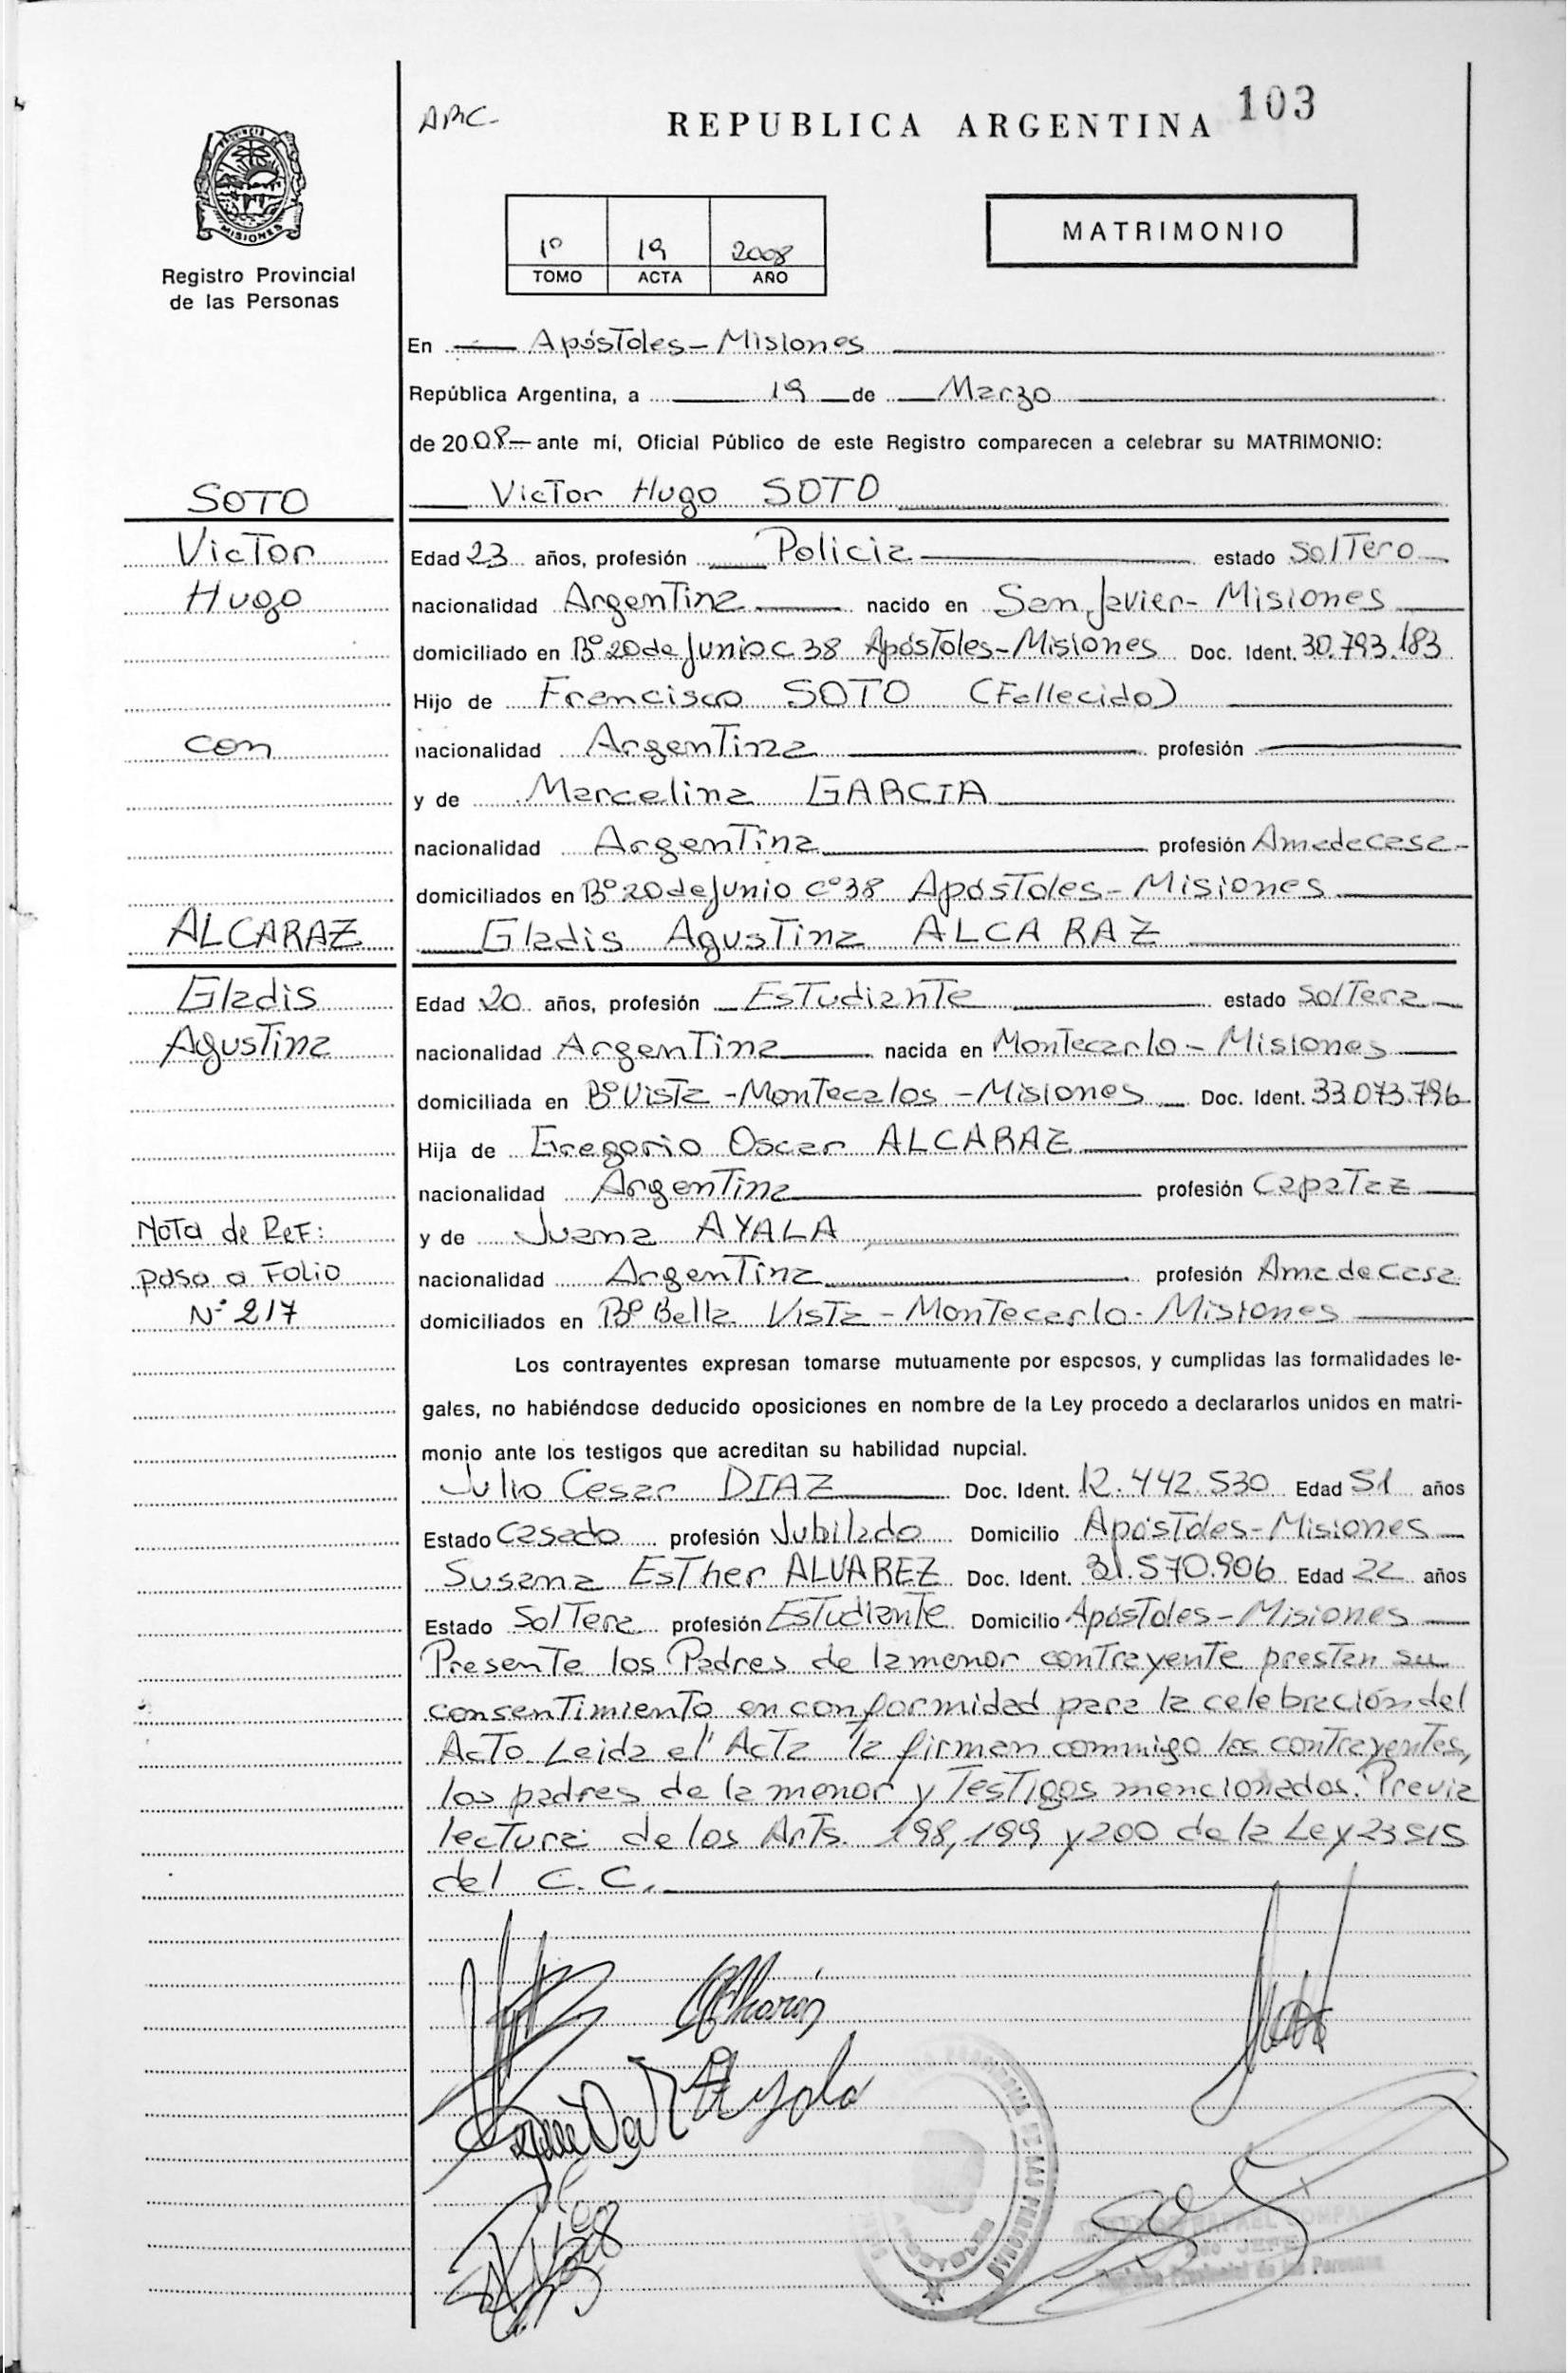 103
ARC-
REPUBLICA ARGENTINA
MISIONES
Registro Provincial
de las Personas
1º 19 2008
TOMO ACTA AÑO
MATRIMONIO
En Apóstoles - Misiones
República Argentina, a 19 de Marzo
de 2008 ante mí, Oficial Público de este Registro comparecen a celebrar su MATRIMONIO:
SOTO
Victor Hugo SOTO
Victor
Edad 23 años, profesión Policia estado Soltero
Hugo
nacionalidad Argentina nacido en San Javier - Misiones
domiciliado en Bº 20 de Junio C 38 Apóstoles - Misiones Doc. Ident. 30.793.183
Hijo de Francisco SOTO (Fallecido)
con
nacionalidad Argentina profesión
y de Marcelina GARCIA
nacionalidad Argentina profesión Ama de casa
domiciliados en Bº 20 de Junio Cº 38 Apóstoles - Misiones
ALCARAZ
Gladis Agustina ALCARAZ
Gladis
Edad 20 años, profesión Estudiante estado Soltera
Agustina
nacionalidad Argentina nacida en Montecarlo - Misiones
domiciliada en Bº Vista - Montecalos - Misiones Doc. Ident. 33.073.796
Hija de Gregorio Oscar ALCARAZ
nacionalidad Argentina profesión Capataz
Nota de Ref:
y de Juana AYALA
pasa a Folio
nacionalidad Argentina profesión Ama de casa
Nº 217
domiciliados en Bº Bella Vista - Montecarlo - Misiones
Los contrayentes expresan tomarse mutuamente por esposos, y cumplidas las formalidades le-
gales, no habiéndose deducido oposiciones en nombre de la Ley procedo a declararlos unidos en matri-
monio ante los testigos que acreditan su habilidad nupcial.
Julio Cesar DIAZ Doc. Ident. 12.442.530 Edad 51 años
Estado Casado profesión Jubilado Domicilio Apóstoles - Misiones
Susana Esther ALVAREZ Doc. Ident. 31.570.906 Edad 22 años
Estado Soltera profesión Estudiante Domicilio Apóstoles - Misiones
Presente los Padres de la menor contrayente prestan su
consentimiento en conformidad para la celebración del
Acto Leida el Acta la firman conmigo los contrayentes,
los padres de la menor y Testigos mencionados. Previa
lectura de los Arts. 198, 199 y 200 de la Ley 23515
del C.C.
Ayala